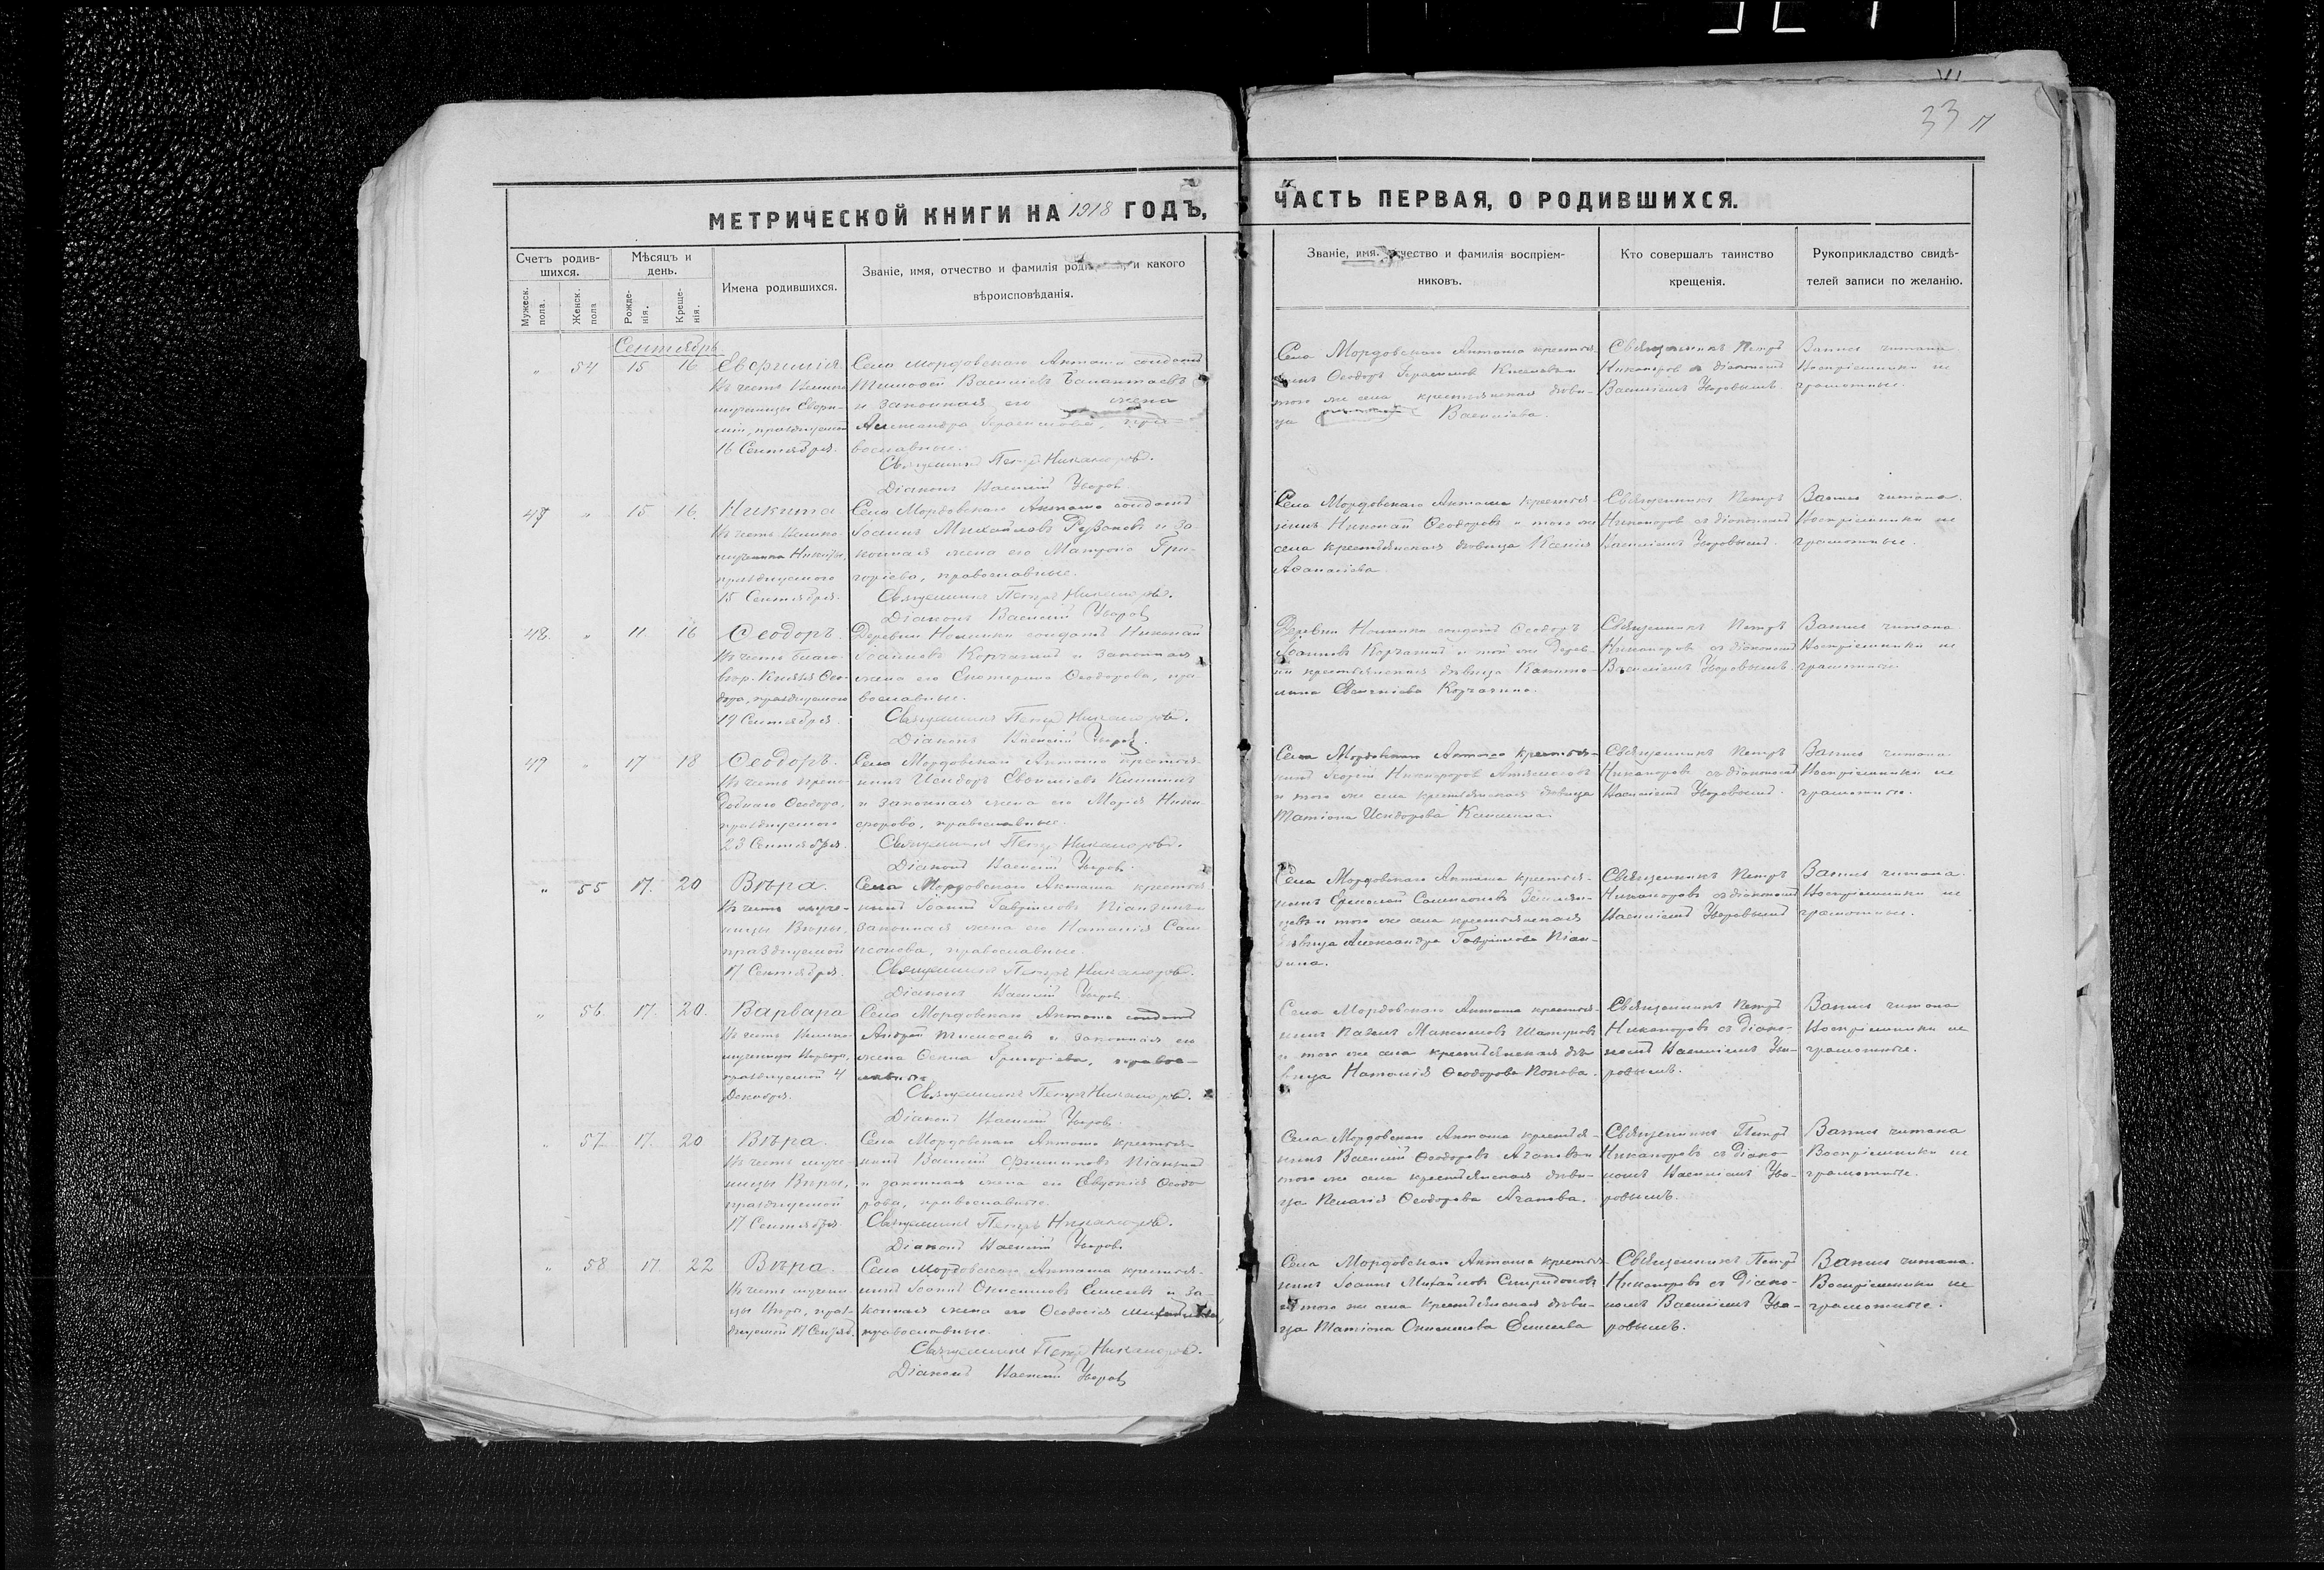 33
МЕТРИЧЕСКОЙ КНИГИ НА 1918 ГОДЪ,
ЧАСТЬ ПЕРВАЯ, О РОДИВШИХСЯ.
Счетъ родив-
шихся.
Мужеск. пола.
Женск. пола
Мѣсяцъ и
день.
Рожде-
нія.
Креще-
нія.
Имена родившихся.
Званіе, имя, отчество и фамилія и какого
вѣроисповѣданія.
Званіе, имя, отчество и фамилія воспріем-
никовъ.
Кто совершалъ таинство
крещенія.
Рукоприкладство свидѣ-
телей записи по желанію.
Сентябрь
" 54 15 16 Евфимія
Въ честь Велико
мученицы Евфи-
міи, празднуемой
16 Сентября.
Села Мордовскаго Акташа солдатъ
Тимофей Васильевъ
и законная его жена
Александра Герасимова, пра-
вославные.
Священникъ Петръ Никаноровъ.
Діаконъ Василій Уваровъ
Села Мордовскаго Акташа крестья-
нинъ Ѳеодоръ Герасимовъ
того же села крестьянская дѣви-
ца Васильева.
Священникъ Петръ
Никаноровъ съ діакономъ
Василіемъ Уваровымъ.
Запись читана
Воспріемники не
грамотные.
47 " 15 16. Никита
Въ честь Велико-
мученика Никиты,
празднуемаго
15 Сентября.
Села Мордовскаго Акташа солдатъ
Іоаннъ Михайловъ и за-
конная жена его Матрона Гри-
горіева, православные.
Священникъ Петръ Никаноровъ.
Діаконъ Василій Уваровъ
Села Мордовскаго Акташа крестья-
нинъ Николай Ѳеодоровъ и того же
села крестьянская дѣвица Ксенія
Аѳанасіева
Священникъ Петръ
Никаноровъ съ діакономъ
Василіемъ Уваровымъ.
Запись читана.
Воспріемники не
грамотные.
48. " 11. 16 Ѳеодоръ.
Въ честь Благо-
вѣр. Князя Ѳео-
дора, празднуемаго
19 Сентября.
Деревни солдатъ Николай
Іоанновъ Корчагинъ и законная
жена его Екатерина Ѳеодорова, пра
вославные.
Священникъ Петръ Никаноровъ.
Діаконъ Василій Уваровъ.
Деревни солдатъ Ѳеодоръ
Іоанновъ Корчагинъ и той же Дерев-
ни крестьянская дѣвица
Корчагина.
Священникъ Петръ
Никаноровъ съ діакономъ
Василіемъ Уваровымъ.
Запись читана
Воспріемники не
грамотные.
49 " 17 18 Ѳеодоръ.
Въ честь Препо-
добнаго Ѳеодора,
празднуемаго
23 Сентября.
Села Мордовскаго Акташа крестья-
нинъ Исидоръ
и законная жена его Марія Ники-
форова, православные.
Священникъ Петръ Никаноровъ.
Діаконъ Василій Уваровъ.
Села Мордовскаго Акташа крестья-
нинъ Георгій Никифоровъ
и того же села крестьянская дѣвица
Татіана Исидорова
Священникъ Петръ
Никаноровъ съ діакономъ
Василіемъ Уваровымъ.
Запись читана
Воспріемники не
грамотные.
" 55 17. 20 Вѣра.
Въ честь муче-
ницы Вѣры,
празднуемой
17 Сентября.
Села Мордовскаго Акташа крестья-
нинъ Іоаннъ Гавріиловъ
законная жена его Наталія Сам-
псонова, православные.
Священникъ Петръ Никаноровъ.
Діаконъ Василій Уваровъ
Села Мордовскаго Акташа крестья-
нинъ
и того же села крестьянская
дѣвица Александра Гавріилова
Священникъ Петръ
Никаноровъ съ діакономъ
Василіемъ Уваровымъ
Запись читана.
Воспріемники не
грамотные.
" 56. 17. 20. Варвара
Въ честь Велико-
мученицы Варвары,
празднуемой 4
Декабря.
Села Мордовскаго Акташа солдатъ
Андрей и законная его
жена Григоріева, правос-
лавные
Священникъ Петръ Никаноровъ.
Діаконъ Василій Уваровъ
Села Мордовскаго Акташа крестья-
нинъ Павелъ Максимовъ
и того же села крестьянская дѣ-
вица Наталія Ѳеодорова Попова.
Священникъ Петръ
Никаноровъ съ Діако-
номъ Василіемъ Ува-
ровымъ.
Запись читана
Воспріемники не
грамотные.
" 57 17. 20 Вѣра.
Въ честь муче-
ницы Вѣры,
празднуемой
17 Сентября.
Села Мордовскаго Акташа крестья-
нинъ Василій Филипповъ
и законная жена его Евдокія Ѳеодо-
рова, православные.
Священникъ Петръ Никаноровъ.
Діаконъ Василій Уваровъ
Села Мордовскаго Акташа крестья-
нинъ Василій Ѳеодоровъ
того же села крестьянская дѣви-
ца Пелагія Ѳеодорова
Священникъ Петръ
Никаноровъ съ Діако-
номъ Василіемъ Ува-
ровымъ.
Запись читана
Воспріемники не
грамотные.
" 58 17. 22 Вѣра.
Въ честь мучени
цы Вѣры, праз-
днуемой 17 Сентяб.
Села Мордовскаго Акташа крестья-
нинъ Іоаннъ Онисимовъ Елисеевъ и за-
конная жена его Ѳеодосія
православные.
Священникъ Петръ Никаноровъ.
Діаконъ Василій Уваровъ
Села Мордовскаго Акташа крестья-
нинъ Іоаннъ Михайловъ Спиридоновъ
и того же села крестьянская дѣви-
ца Татіана Онисимова Елисеева
Священникъ Петръ
Никаноровъ съ Діако-
номъ Василіемъ Ува-
ровымъ.
Запись читана.
Воспріемники не
грамотные.